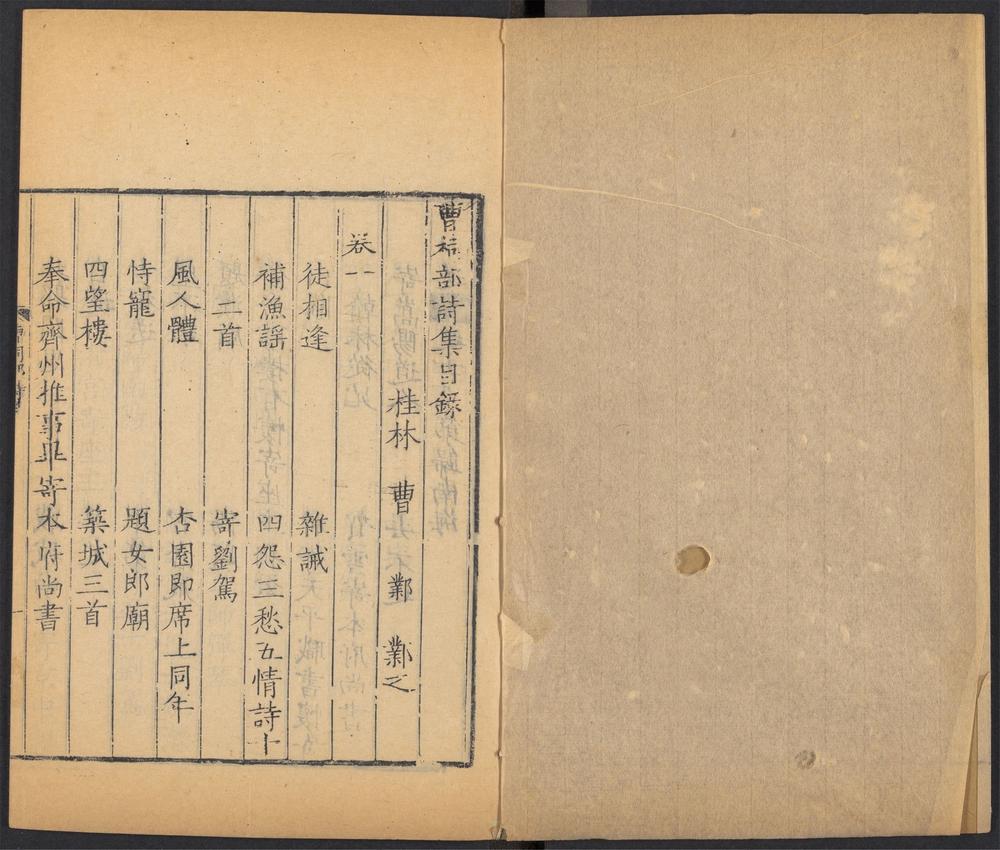 曹祠部詩集目錄
桂林　曹　鄴　鄴之
卷一
徒相逢　雜誡
補漁謡　四怨三愁五情詩十
二首　寄劉駕
風人體　杏園即席上同年
恃寵　題女郎廟
四望樓　築城三首
奉命齊州推事畢寄本府尚書